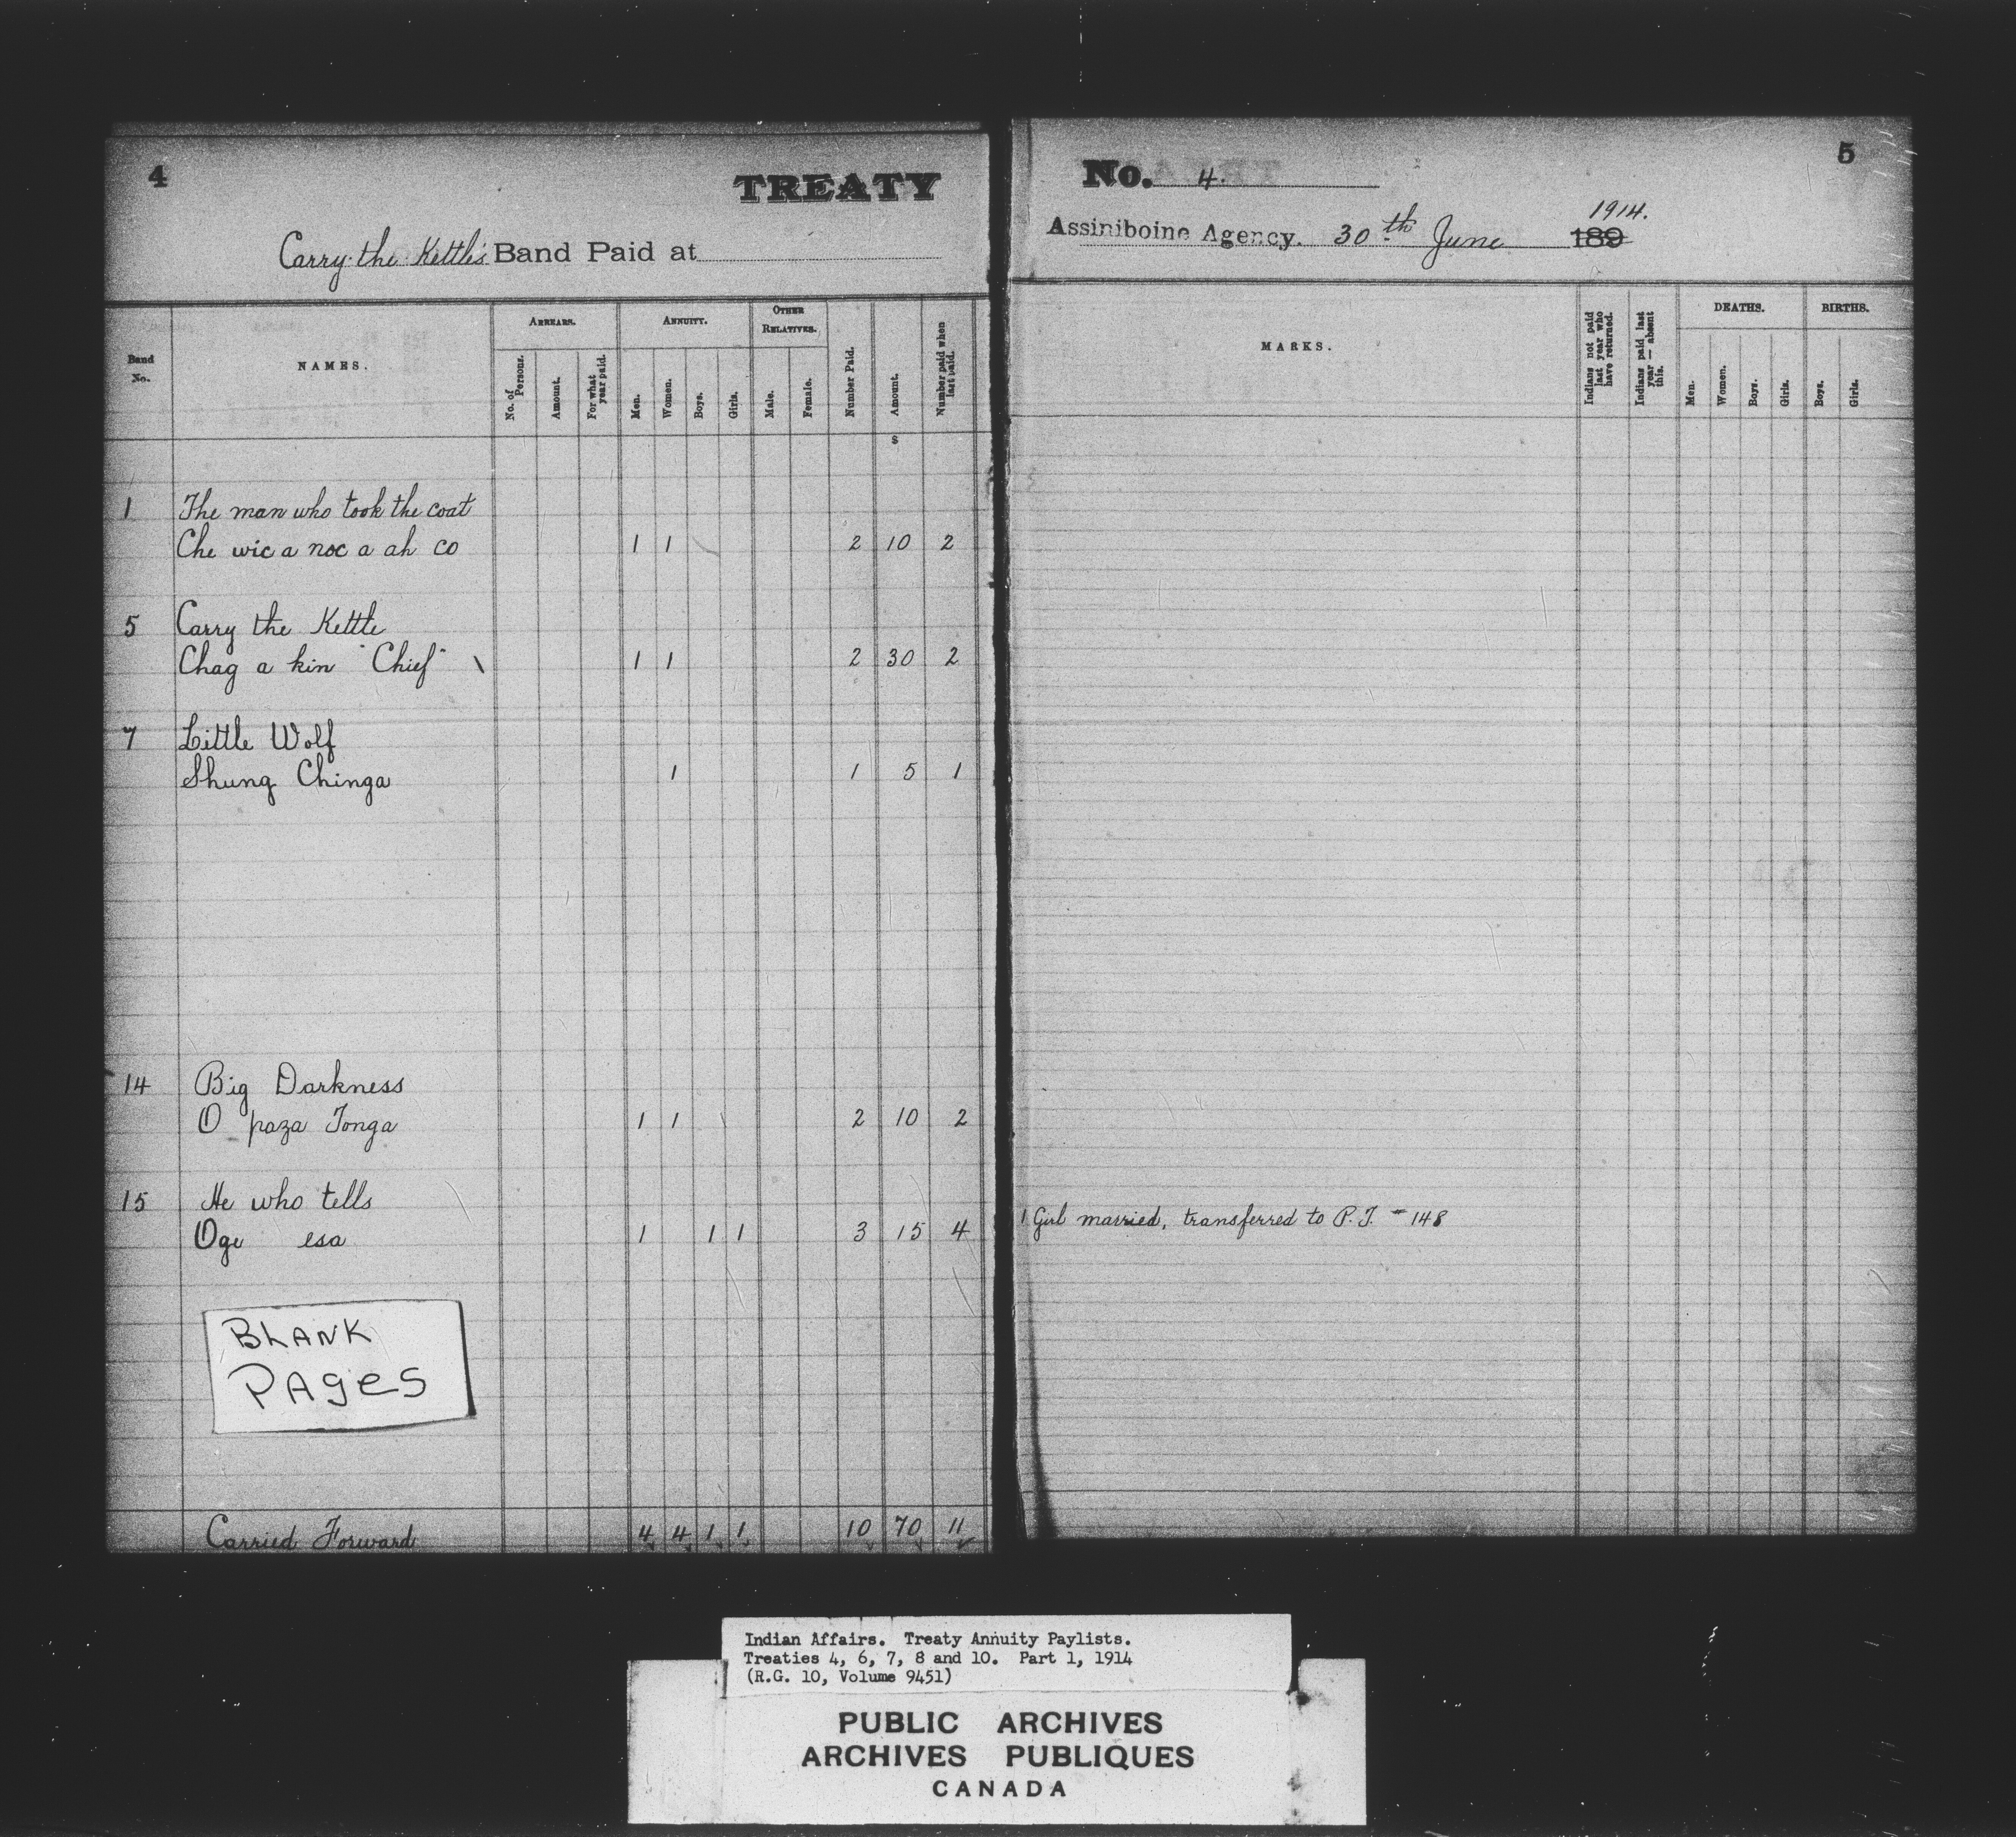 4
TREATY
Carry the Kettle's Band Paid at
Band No.
NAMES.
ARREARS.
No. of Persons.
Amount.
For what year paid.
ANNUITY.
Men.
Women.
Boys.
Girls.
OTHER RELATIVES.
Male.
Female.
Number Paid.
Amount.
Number paid when last paid.
$
1 The man who took the coat
Che wic a noc a ah co 1 1 2 10 2
5 Carry the Kettle
Chag a kin "Chief" \ 1 1 2 30 2
7 Little Wolf
Shung Chinga 1 1 5 1
14 Big Darkness
O paza Tonga 1 1 2 10 2
15 He who tells
Oge esa 1 1 1 3 15 4
BLANK
PAges
Carried Forward 4 4 1 1 10 70 11
5
No. 4.
Assiniboine Agency. 30th June 189 1914.
MARKS.
Indians not paid last year who have returned.
Indians paid last year — absent this.
DEATHS.
Men.
Women.
Boys.
Girls.
BIRTHS.
Boys.
Girls.
1 Girl married, transferred to P.T. - 148
Indian Affairs. Treaty Annuity Paylists.
Treaties 4, 6, 7, 8 and 10. Part 1, 1914
(R.G. 10, Volume 9451)
PUBLIC ARCHIVES
ARCHIVES PUBLIQUES
CANADA